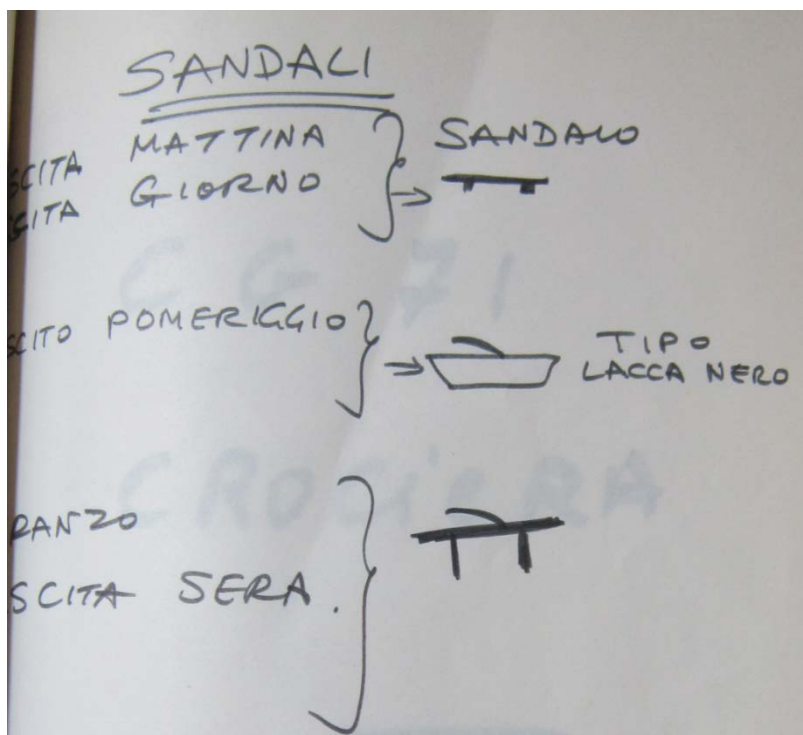 SANDALI
SCITA MATTINA
SCITA GIORNO
SANDALO
SCITO POMERIGGIO
TIPO
LACCA NERO
RANZO
SCITA SERA.
CG 71
CROCiERA